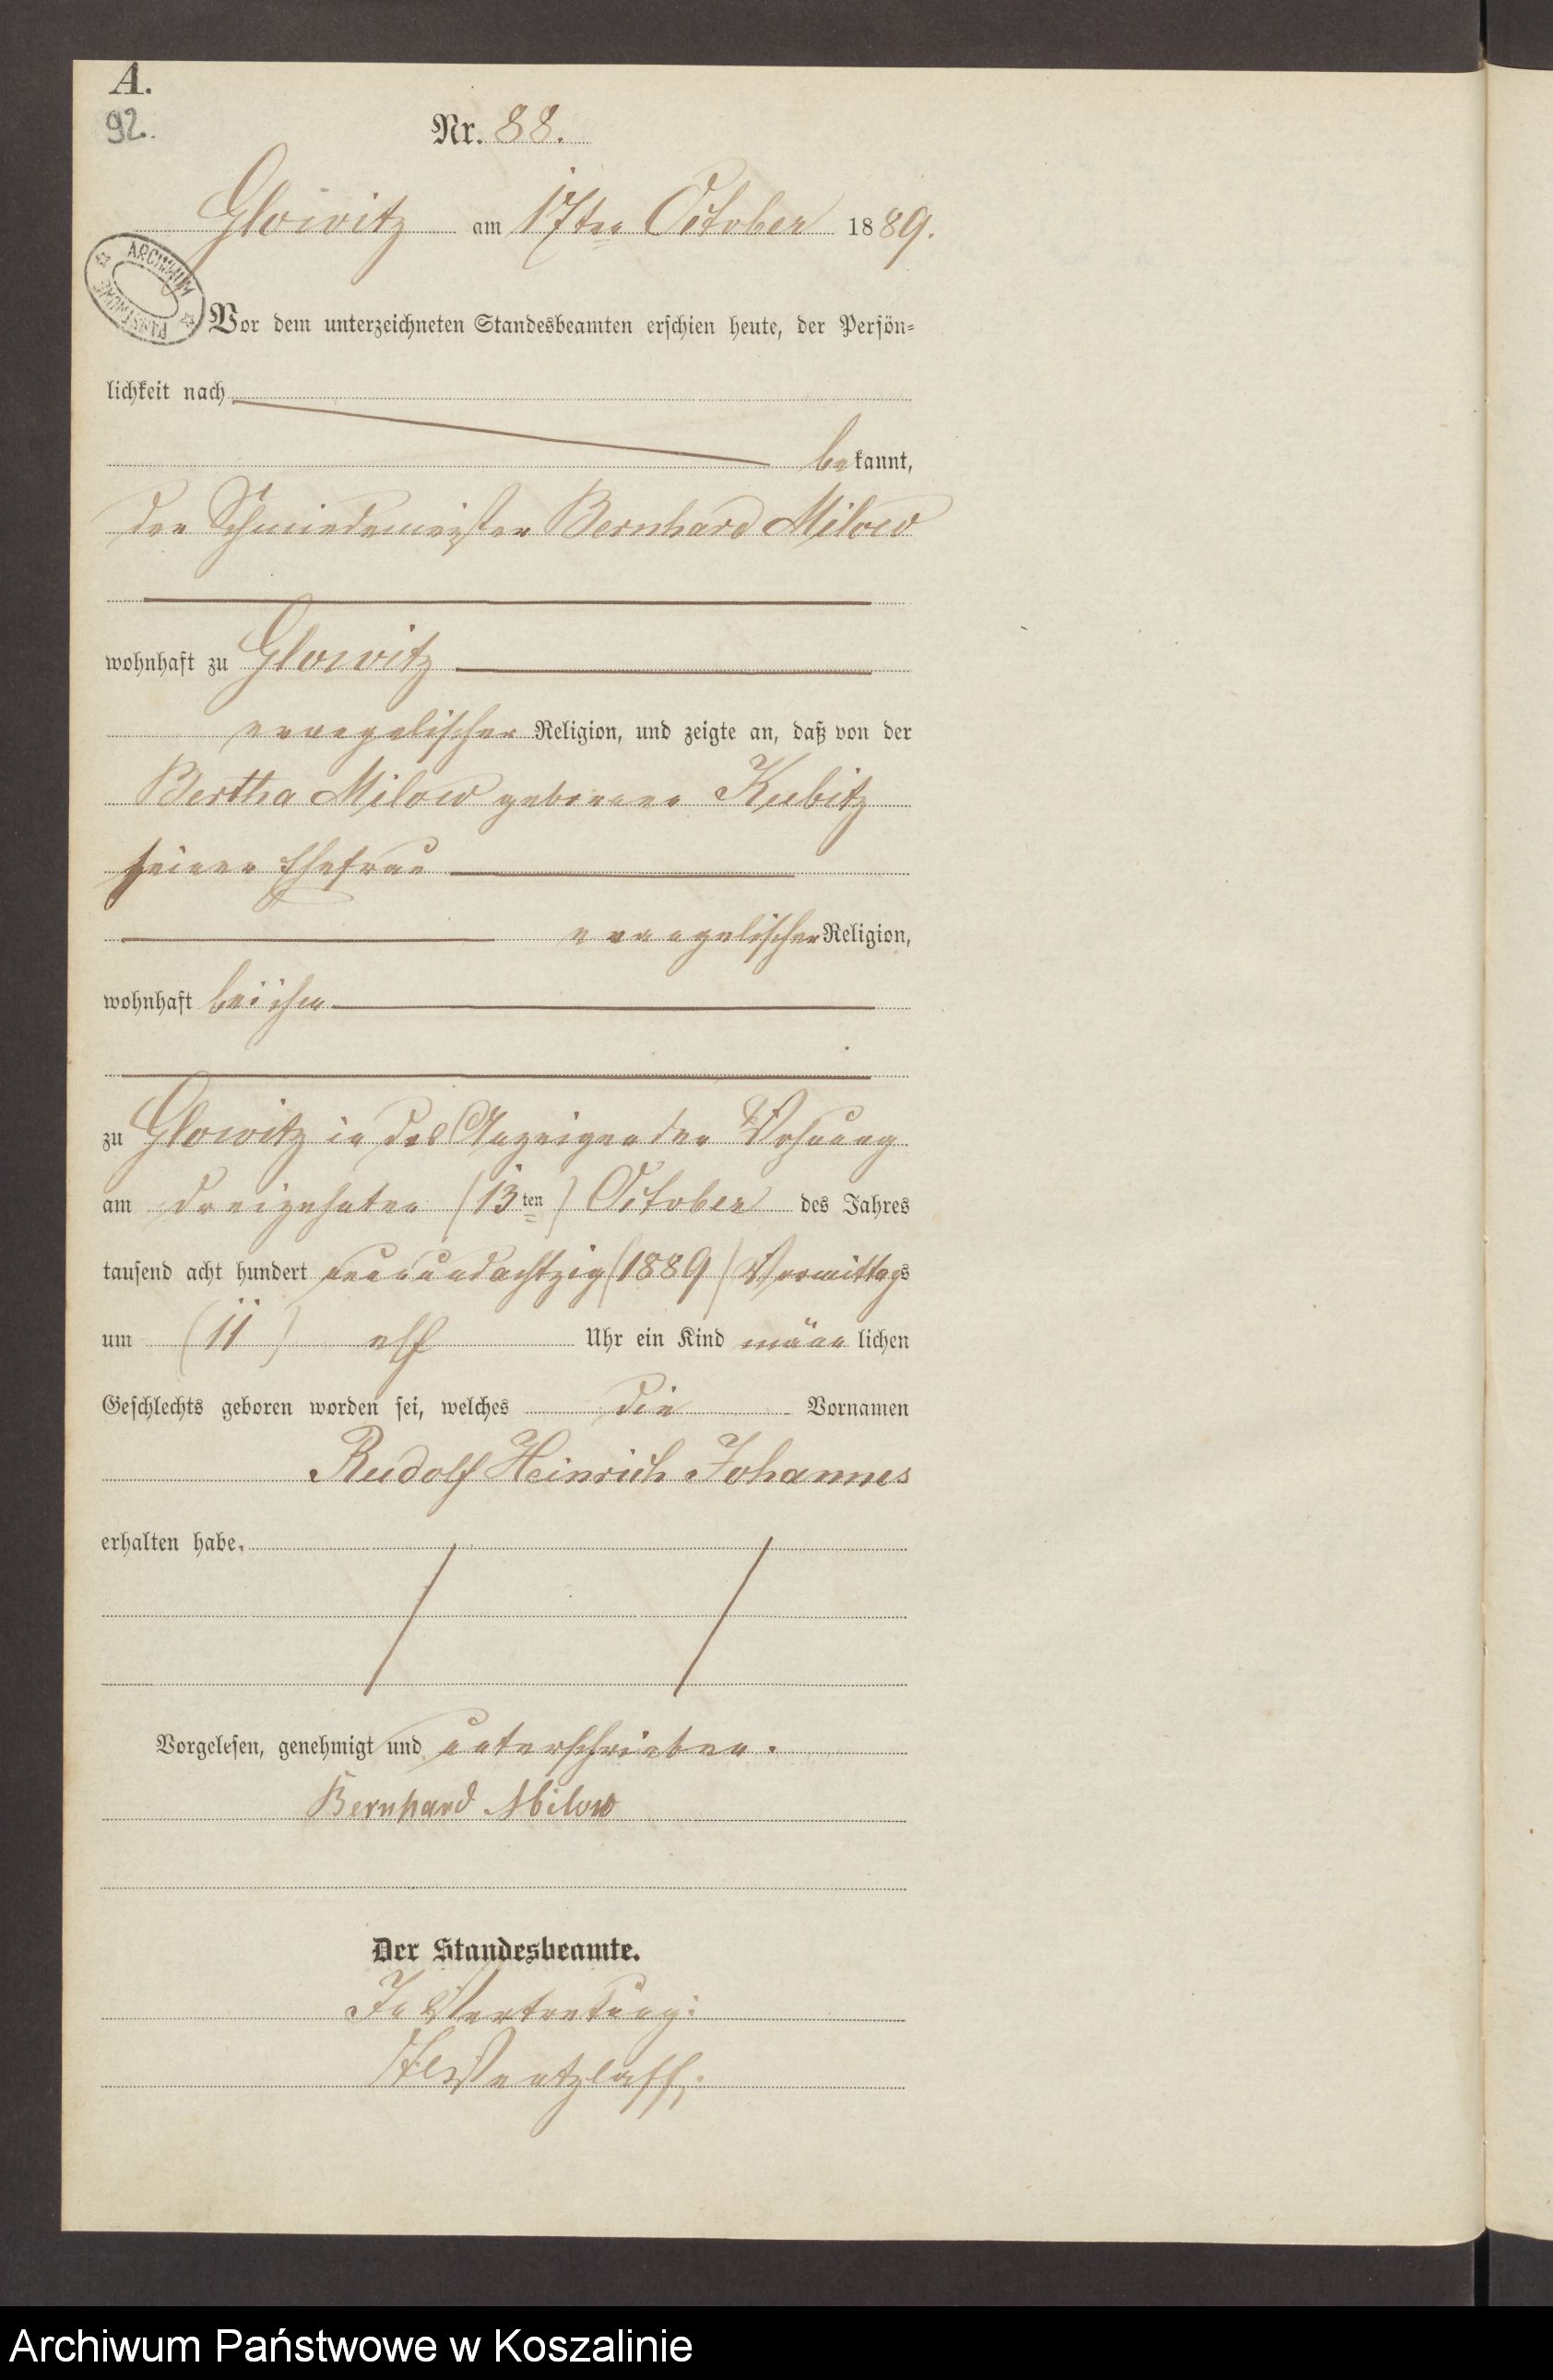 A.
92.
Nr. 88.
Glowitz am 17ten October 1889.
ARCHIWUM PAŃSTWOWE
Vor dem unterzeichneten Standesbeamten erschien heute, der Persön-
lichkeit nach
bekannt,
der Schmiedemeister Bernhard Milow
wohnhaft zu Glowitz
evangelischer Religion, und zeigte an, daß von der
Bertha Milow geborenen Kubitz
seiner Ehefrau
evangelischer Religion,
wohnhaft bei ihm
zu Glowitz in des Anzeigenden Wohnung
am dreizehnten (13ten) October des Jahres
tausend acht hundert neunundachtzig (1889) Vormittags
um (11) elf Uhr ein Kind männlichen
Geschlechts geboren worden sei, welches die Vornamen
Rudolf Heinrich Johannes
erhalten habe.
Vorgelesen, genehmigt und unterschrieben.
Bernhard Milow
Der Standesbeamte.
In Vertretung:
Wentzlaff.
Archiwum Państwowe w Koszalinie